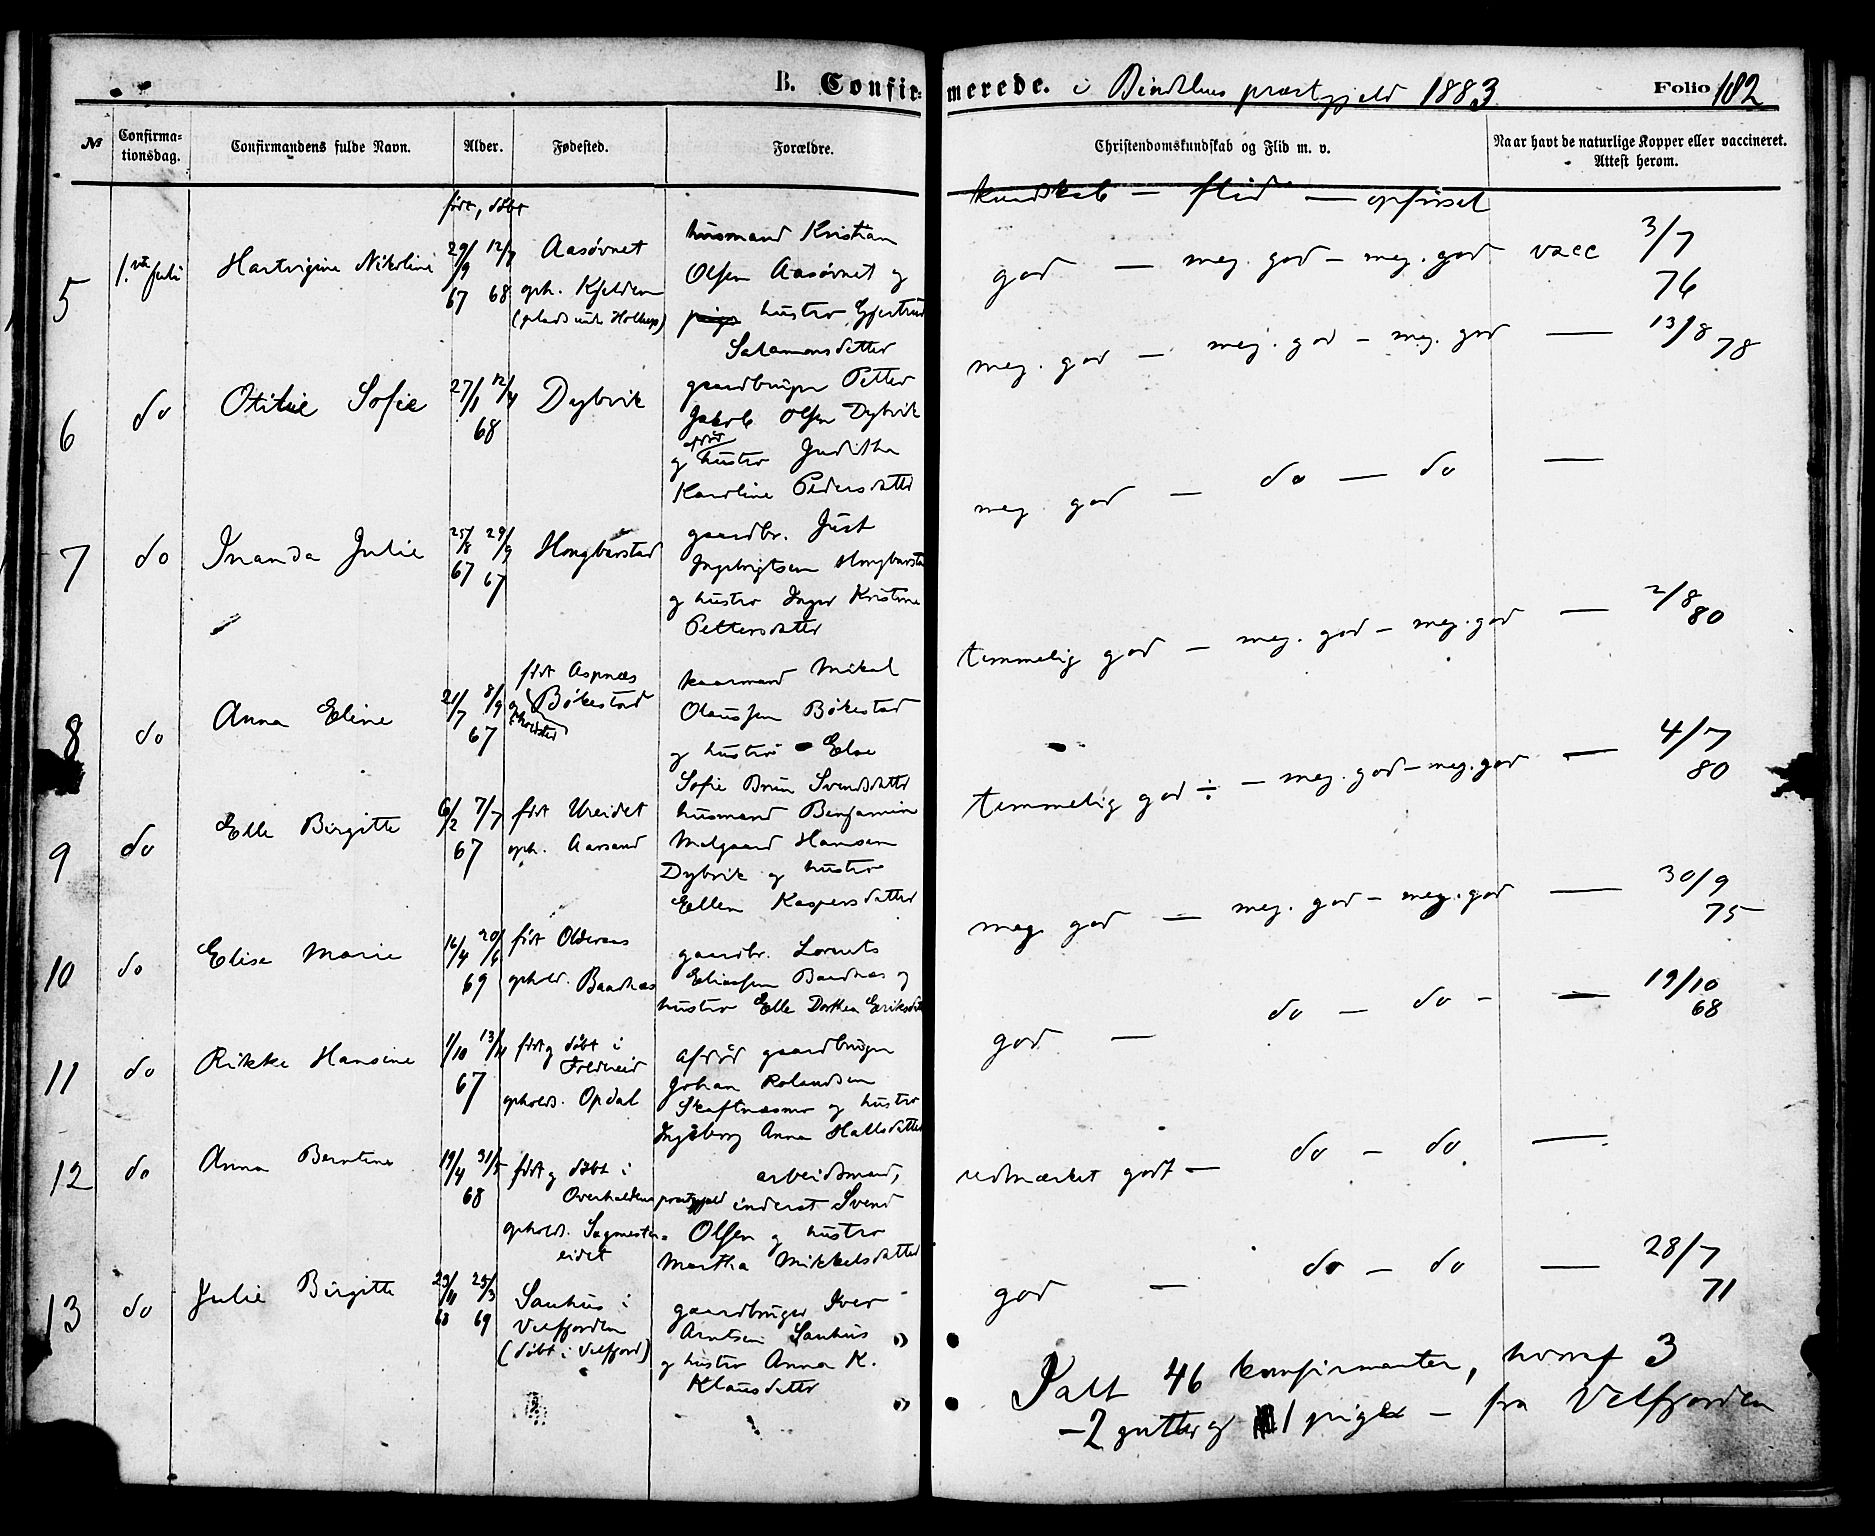 B. Confirmerede. i Bindalens præstegjeld 1883 Folio 182
№ Confirmationsdag. Confirmandens fulde Navn. Alder. Fødested. Forældre. Christendomskundskab og Flid m. v. Naar havt de naturlige Kopper eller vaccineret. Attest herom.
født, døbt
kundskab — flid — opførsel
5 1. juli Hartvigine Nikoline 29/9 67 12/7 68 Aasøvnet
oph. Kjelden
husmand Kristian
Olsen Aasøvnet og
hustro Gjertrud
Salamonsdatter
god — meg. god — meg. god vacc 3/7 76
6 do Otilie Sofie 27/1 12/4 68 Dybvik
gaardbruger Petter
Jakob Olsen Dybvik
og hustro Juditha
Karoline Pedersdatter
meg. god — meg. god — meg. god — 13/8 78
7 do Inanda Julie 25/8 67 29/9 67 Hongbarstad
gaardbr. Just
Ingebrigtsen Hongbarstad
og hustro Inger Kristine
Pettersdatter
meg god — do — do —
8 do Anna Eline 21/7 8/9 67 født Aspnæs
Bøkestad
kaarmand Mikal
Olaussen Bøkestad
og hustro Else
Sofie Brun Svendsdatter
temmelig god — meg. god — meg. god — 2/8 80
9 do Elle Birgitte 6/2 7/7 67 født Ureidet
oph. Aarsand
husmand Benjamin
Melgaard Hansen
Dybvik og hustro
Ellen Kaspersdatter
temmelig god ÷ — meg. god — meg. god — 4/7 80
10 do Elise Marie 16/4 20/6 69 født Olderaas
ophold. Baadnæs
gaardbr. Lornts
Eliassen Baadnæs og
hustro Elle Dorthea Eriksdtr
meg god — meg. god — meg. god — 30/9 75
11 do Rikke Hansine 1/10 13/11 67 født og døbt i
Foldereid
opholds. Opdal
afdød gaardbruger
Johan Rolandsen
Skaftnæsmo og hustro
Ingeborg Anna Hallsdatter
god — do — do — — 19/10 68
12 do Anna Berntine 19/4 31/5 68 født og døbt i
Overhalden præstegjeld
opholds. Sagmestereidet
arbeidsmand,
inderst Svend
Olsen og hustro
Martha Mikkelsdatter
udmærket godt — do — do —
13 do Julie Birgitte 23/11 68 25/3 69 Sauhus i
Velfjorden
(døbt i Velfjord)
gaardbruger Iver
Arntsen Sauhus
og hustro Anna K.
Klausdatter
god — do — do — 28/7 71
Ialt 46 konfirmanter, hvoraf 3
— 2 gutter og 1 pige — fra Velfjorden